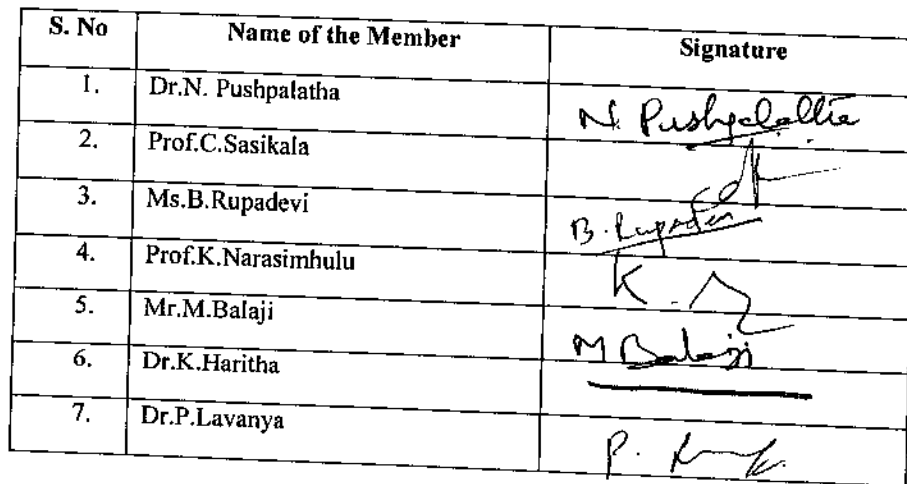 S. No Name of the Member Signature
1. Dr.N. Pushpalatha N. Pushpalatha
2. Prof.C.Sasikala
3. Ms.B.Rupadevi B. Rupadevi
4. Prof.K.Narasimhulu K.
5. Mr.M.Balaji M Balaji
6. Dr.K.Haritha
7. Dr.P.Lavanya P.